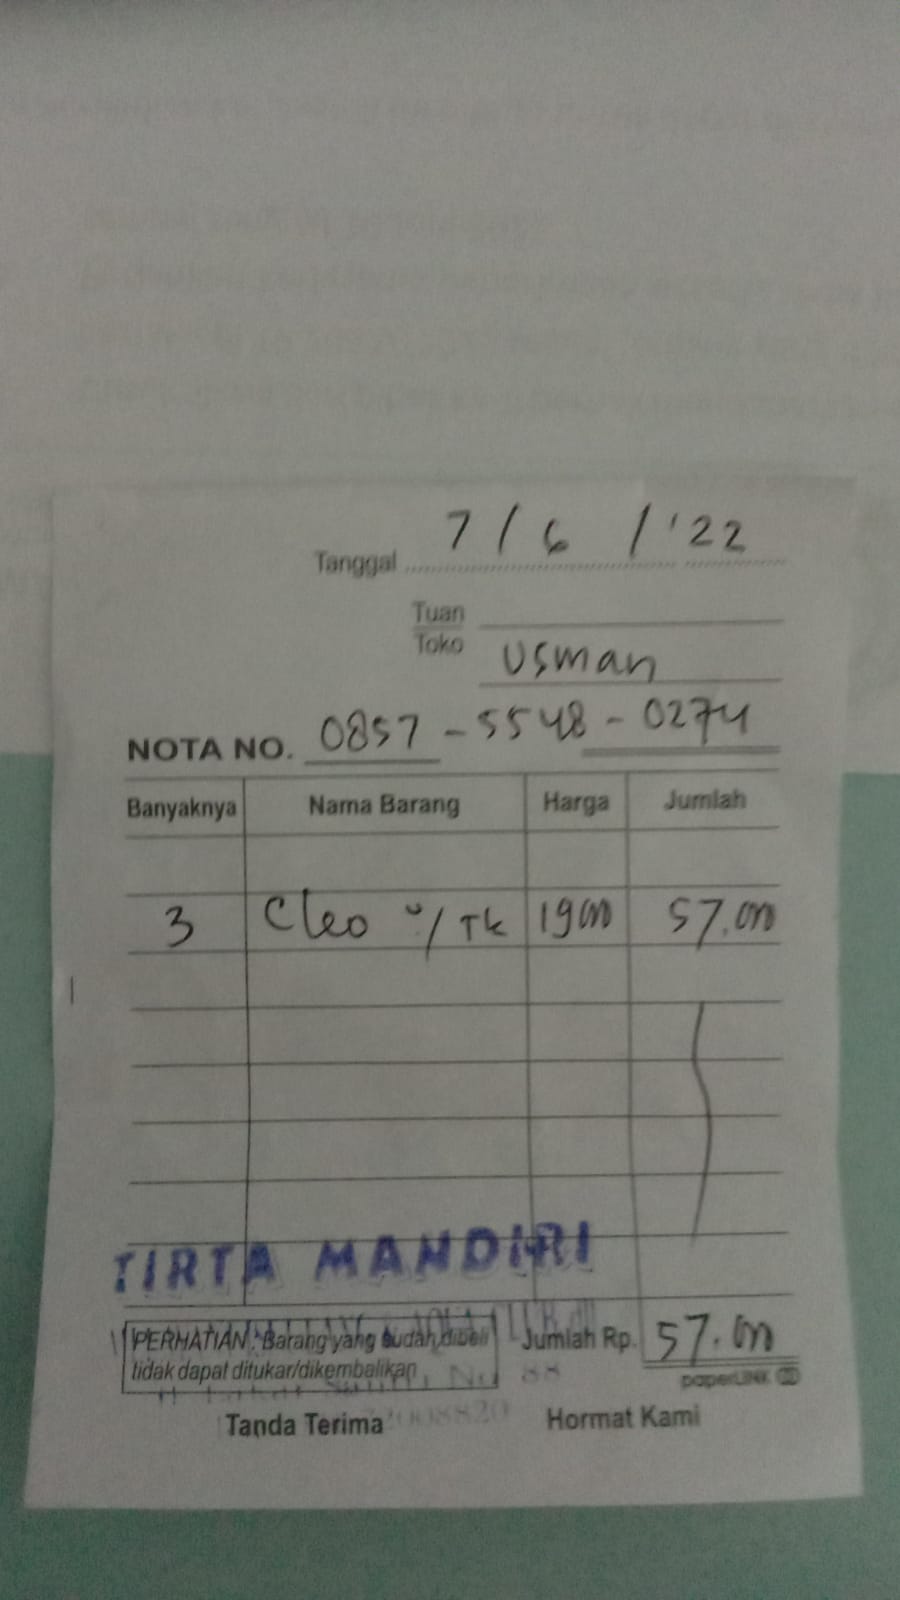 Tanggal 7 / 6 / '22
Tuan
Toko Usman
NOTA NO. 0857 - 5548 - 0274
Banyaknya Nama Barang Harga Jumlah
3 Cleo u/ Tk 19000 57.000
TIRTA MANDIRI
PERHATIAN : Barang yang sudah dibeli
tidak dapat ditukar/dikembalikan
Jumlah Rp. 57.000
No 88
paperLINE
Tanda Terima Hormat Kami